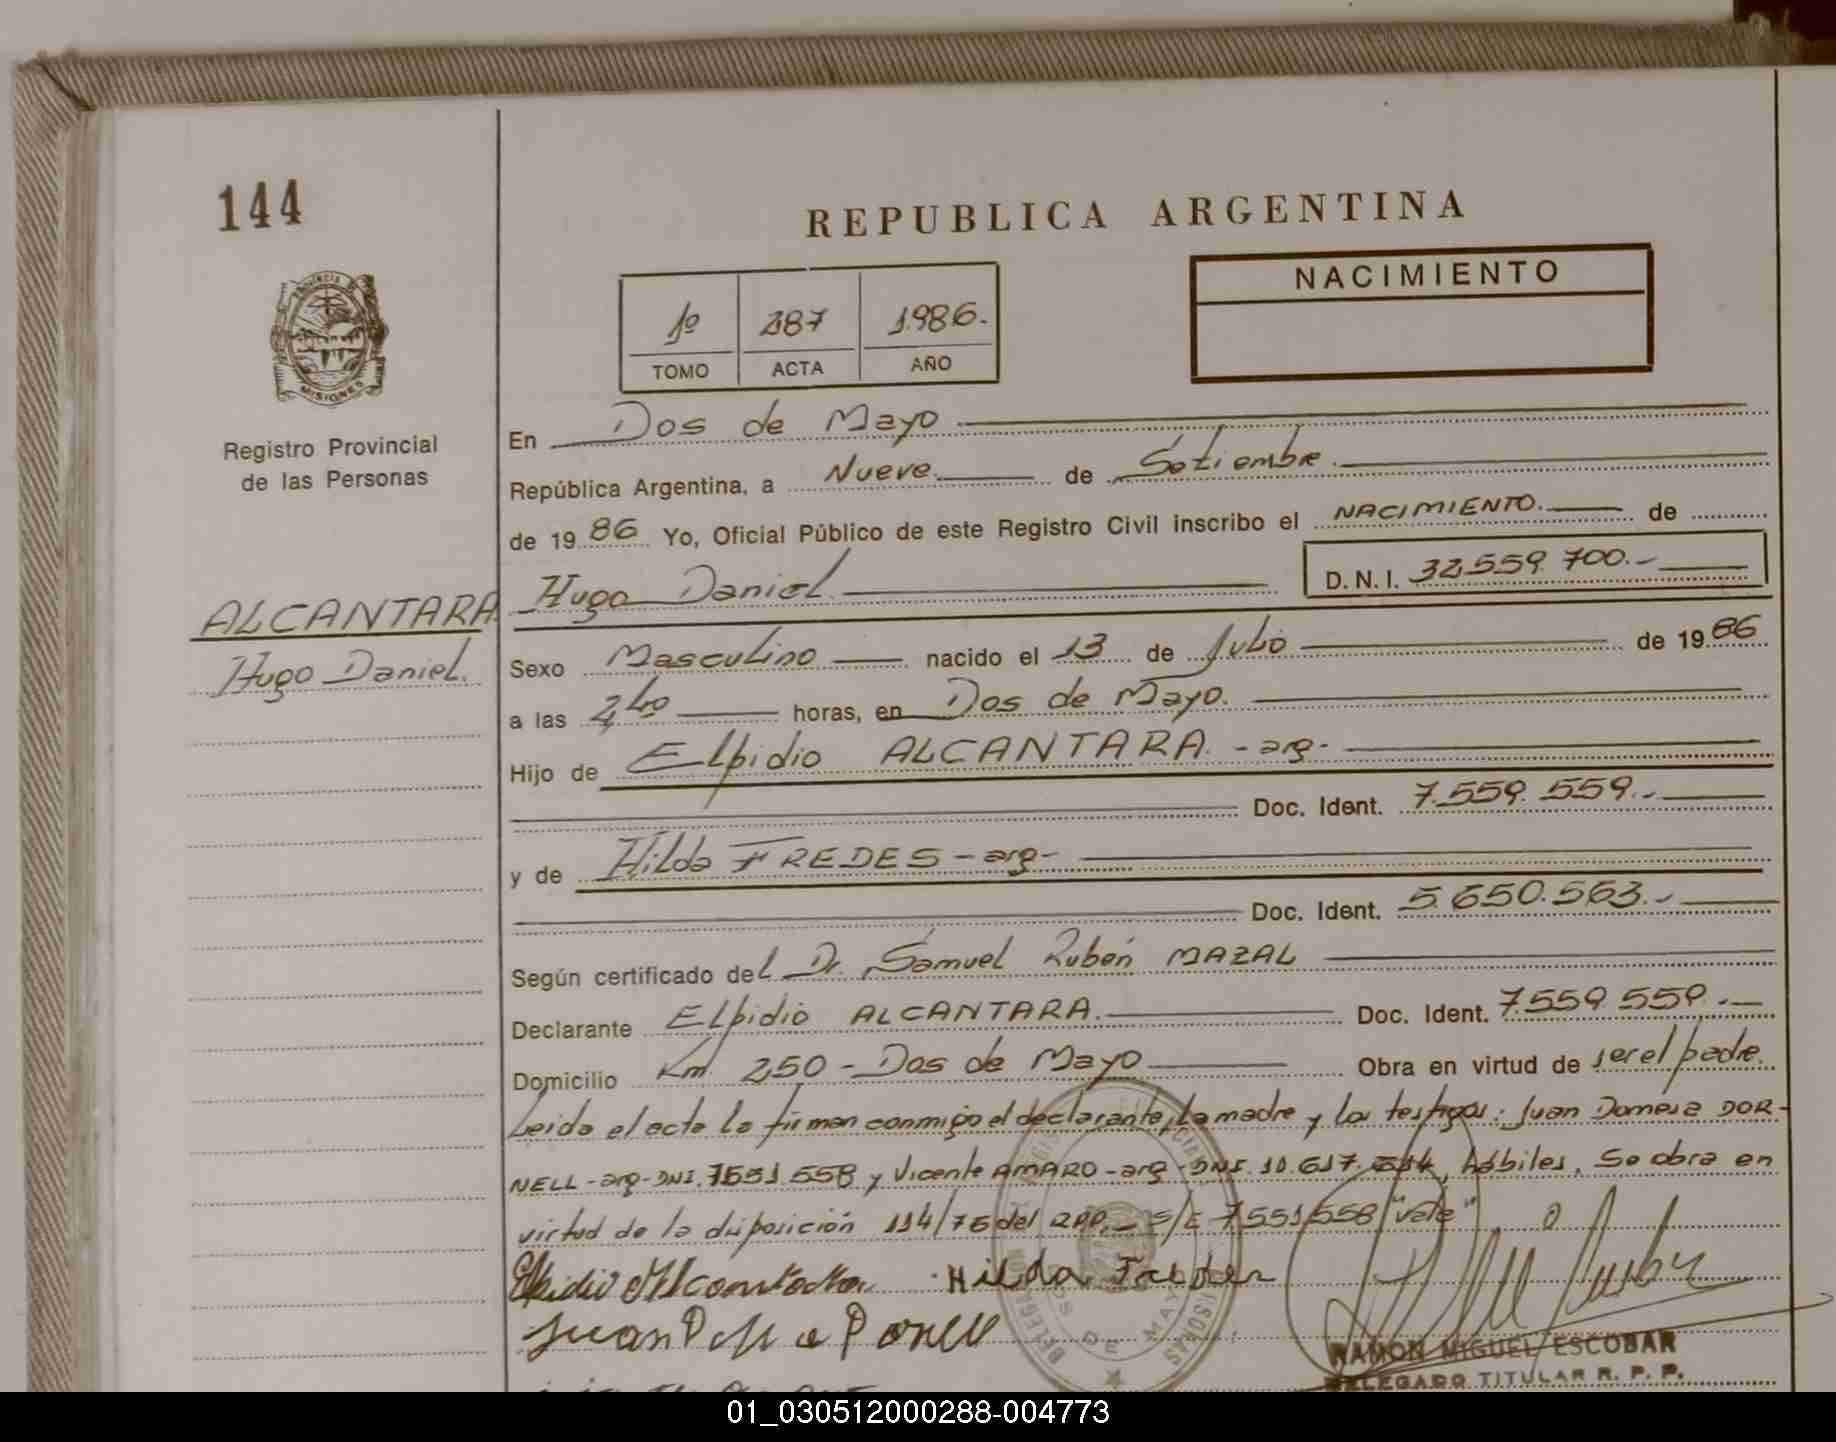 144
REPUBLICA ARGENTINA
NACIMIENTO
1º 287 1.986.-
TOMO ACTA AÑO
MISIONES
Registro Provincial
de las Personas
En Dos de Mayo
República Argentina, a Nueve. de Setiembre.
de 19 86 Yo, Oficial Público de este Registro Civil inscribo el NACIMIENTO. de
Hugo Daniel. D.N.I. 32.559.700.-
ALCANTARA
Hugo Daniel.
Sexo Masculino nacido el 13 de Julio de 19 86
a las horas, en Dos de Mayo.
Hijo de Elpidio ALCANTARA. -arg-
Doc. Ident. 7.559.559.-
y de Hilda FREDES -arg-
Doc. Ident. 5.650.563.-
Según certificado del Dr. Samuel Rubén MAZAL
Declarante Elpidio ALCANTARA. Doc. Ident. 7.559.559.-
Domicilio Km. 250 - Dos de Mayo Obra en virtud de ser el padre.
Leida el acta la firman conmigo el declarante, la madre y los testigos: Juan DOR-
NELL -arg- DNI. 7.551.558 y Vicente AMARO -arg- DNI. 10.617. hábiles. Se obra en
virtud de la disposición 114/75 del RPP.- S/E 7.551.558 "vale"
Elpidio Alcantara Hilda Fredes
Juan
RAMON MIGUEL ESCOBAR
DELEGADO TITULAR R. P. P.
01_030512000288-004773